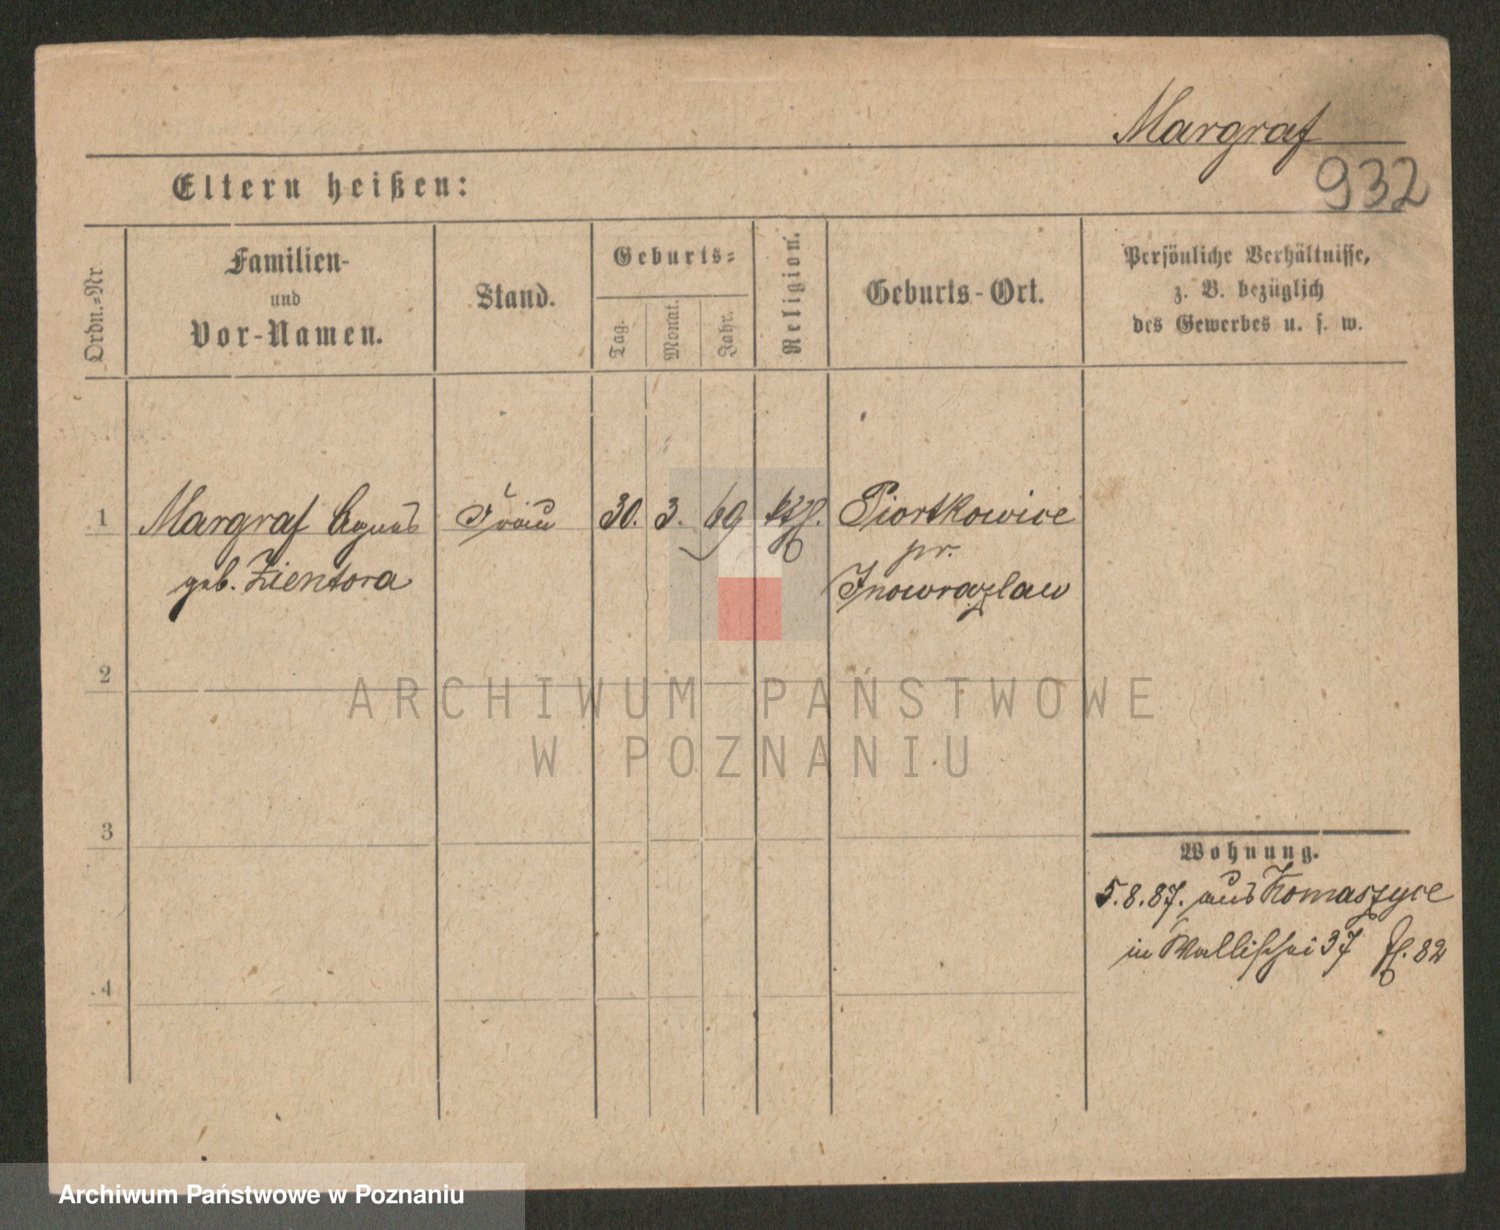 Margraf
932
Eltern heißen:
Ordn.-Nr
Familien-
und
Vor-Namen.
Stand.
Geburts-
Tag.
Monat.
Jahr.
Religion.
Geburts-Ort.
Persönliche Verhältnisse,
z. B. bezüglich
des Gewerbes u. s. w.
1 Margraf Agnes Frau 30. 3. 69 Piortkowice
geb. Zientora
pr.
Inowrazlaw
2
ARCHIWUM PAŃSTWOWE
W POZNANIU
3
Wohnung.
5.8.87. aus Komaszyce
in Wallischei 37 82
4
Archiwum Państwowe w Poznaniu